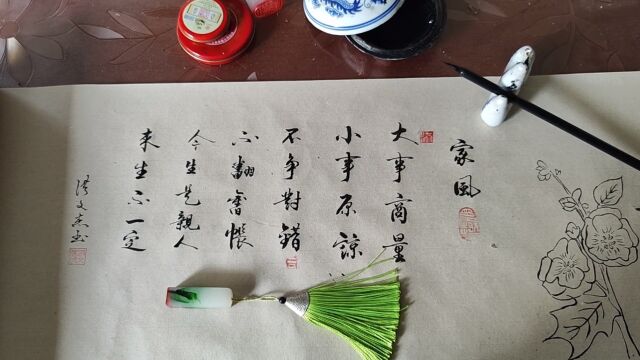 家風
大事商量
小事原諒
不争對錯
不翻舊帳
今生是親人
来生不一定